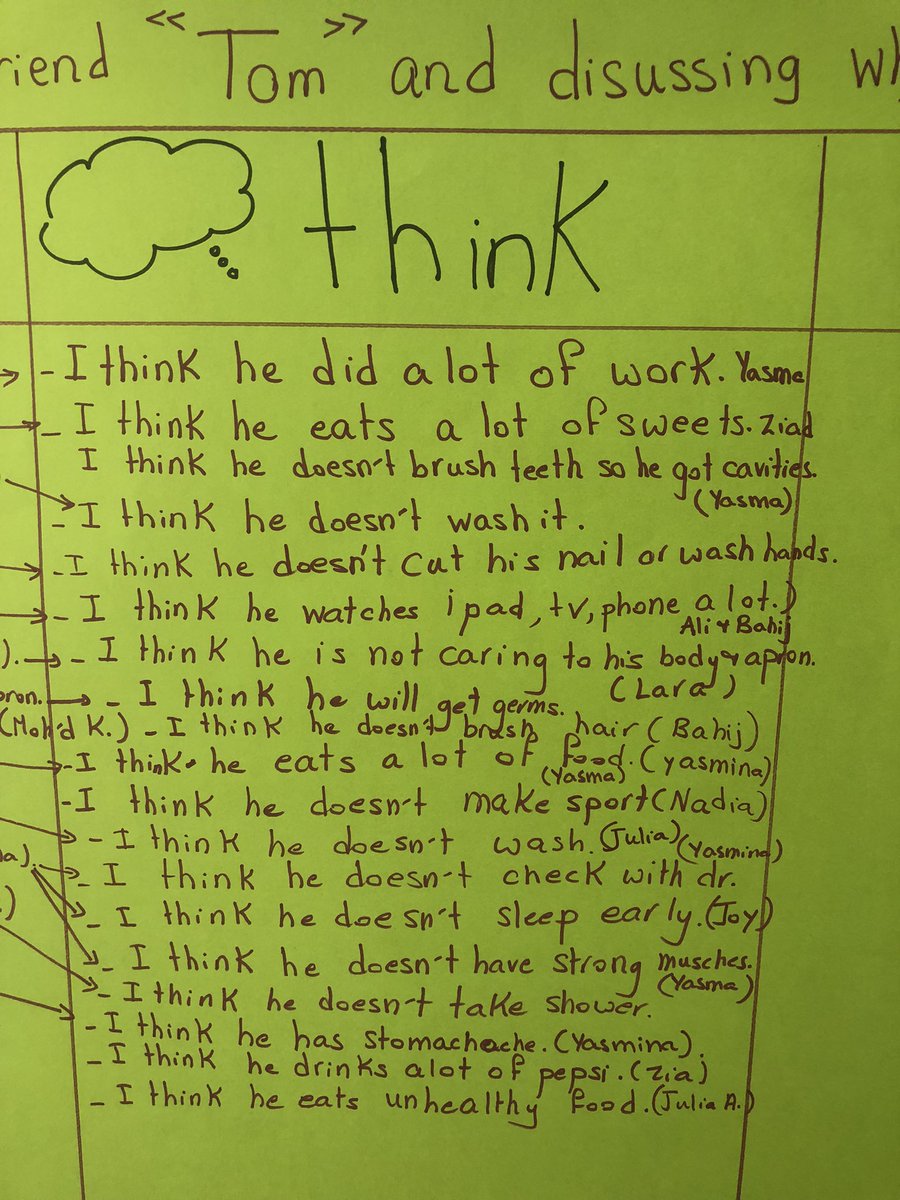 riend "Tom" and disussing wh
think
- I think he did a lot of work. Yasma
- I think he eats a lot of sweets. Ziad
I think he doesn't brush teeth so he got cavities.
(Yasma)
- I think he doesn't wash it.
- I think he doesn't cut his nail or wash hands.
- I think he watches ipad, tv, phone a lot.)
Ali & Bahij
). - I think he is not caring to his body & apron.
(Lara)
pron. - I think he will get germs.
(Moh'd K.) - I think he doesn't brush hair (Bahij)
- I think he eats a lot of food. (yasmina)
(Yasma)
- I think he doesn't make sport (Nadia)
- I think he doesn't wash. (Julia) (Yasmina)
a). - I think he doesn't check with dr.
.) - I think he doesn't sleep early. (Joy)
- I think he doesn't have strong musches.
(Yasma)
- I think he doesn't take shower.
- I think he has stomachache. (Yasmina).
- I think he drinks alot of pepsi. (Zia)
- I think he eats unhealthy food. (Julia A.)